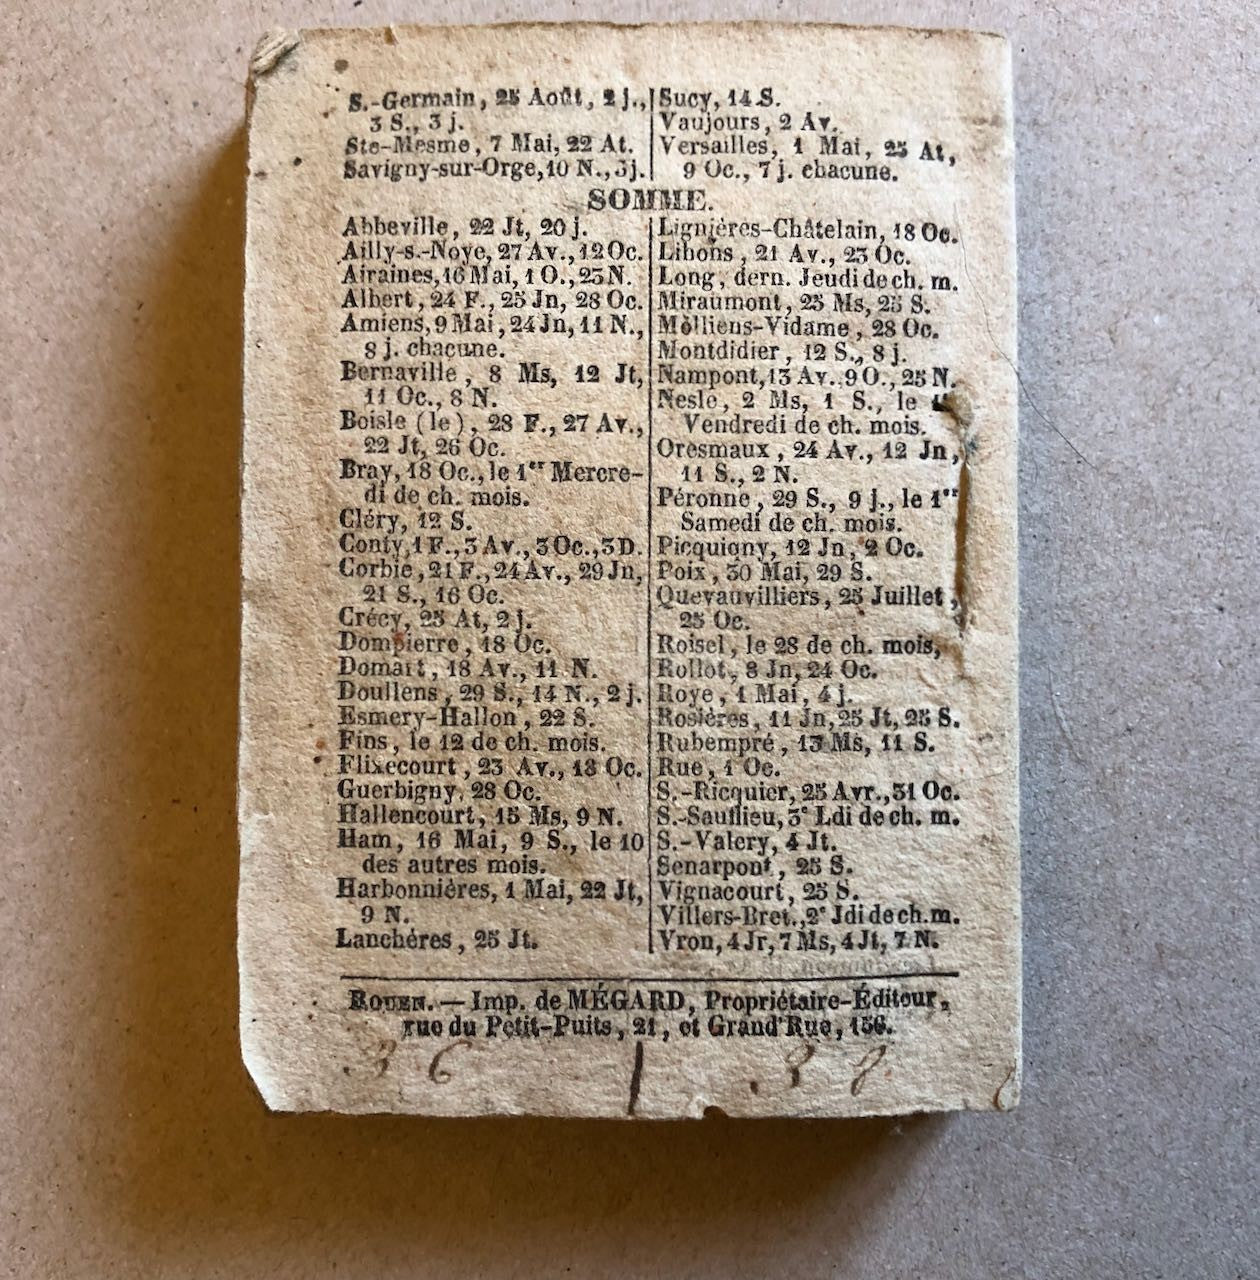 S.-Germain, 25 Août, 2 j.,
3 S., 3 j.
Ste-Mesme, 7 Mai, 22 At.
Savigny-sur-Orge, 10 N., 3j.
Sucy, 14 S.
Vaujours, 2 Av.
Versailles, 1 Mai, 25 At,
9 Oc., 7 j. chacune.
SOMME.
Abbeville, 22 Jt, 20 j.
Ailly-s.-Noye, 27 Av., 12 Oc.
Airaines, 16 Mai, 1 O., 23 N.
Albert, 24 F., 25 Jn, 28 Oc.
Amiens, 9 Mai, 24 Jn, 11 N.,
8 j. chacune.
Bernaville, 8 Ms, 12 Jt,
11 Oc., 8 N.
Boisle (le), 28 F., 27 Av.,
22 Jt, 26 Oc.
Bray, 18 Oc., le 1er Mercre-
di de ch. mois.
Cléry, 12 S.
Conty, 1 F., 3 Av., 3 Oc., 3 D.
Corbie, 21 F., 24 Av., 29 Jn,
21 S., 16 Oc.
Crécy, 25 At, 2 j.
Dompierre, 18 Oc.
Domart, 18 Av., 11 N.
Doullens, 29 S., 14 N., 2 j.
Esmery-Hallon, 22 S.
Fins, le 12 de ch. mois.
Flixecourt, 23 Av., 13 Oc.
Guerbigny, 28 Oc.
Hallencourt, 15 Ms, 9 N.
Ham, 16 Mai, 9 S., le 10
des autres mois.
Harbonnières, 1 Mai, 22 Jt,
9 N.
Lanchères, 25 Jt.
Lignières-Châtelain, 18 Oc.
Lihons, 21 Av., 23 Oc.
Long, dern. Jeudi de ch. m.
Miraumont, 25 Ms, 25 S.
Molliens-Vidame, 28 Oc.
Montdidier, 12 S., 8 j.
Nampont, 13 Av., 9 O., 25 N.
Nesle, 2 Ms, 1 S., le 1er
Vendredi de ch. mois.
Oresmaux, 24 Av., 12 Jn,
11 S., 2 N.
Péronne, 29 S., 9 j., le 1er
Samedi de ch. mois.
Picquigny, 12 Jn, 2 Oc.
Poix, 30 Mai, 29 S.
Quevauvilliers, 25 Juillet,
25 Oc.
Roisel, le 28 de ch. mois,
Rollot, 8 Jn, 24 Oc.
Roye, 1 Mai, 4 j.
Rosières, 11 Jn, 25 Jt, 25 S.
Rubempré, 13 Ms, 11 S.
Rue, 1 Oc.
S.-Ricquier, 25 Avr., 31 Oc.
S.-Sauflieu, 3e Ldi de ch. m.
S.-Valery, 4 Jt.
Senarpont, 25 S.
Vignacourt, 25 S.
Villers-Bret., 2e Jdi de ch. m.
Vron, 4 Jr, 7 Ms, 4 Jt, 7 N.
ROUEN. — Imp. de MÉGARD, Propriétaire-Éditeur,
rue du Petit-Puits, 21, et Grand'Rue, 156.
36 38